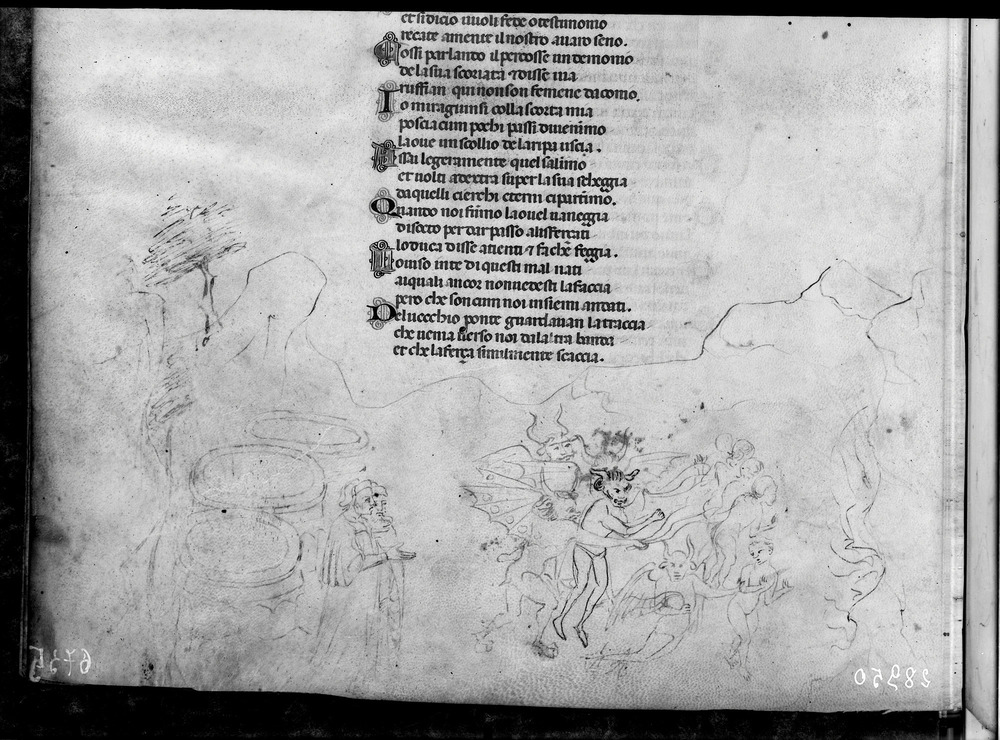 et sidicio uuoli fede o testimonio
recate amente il nostro auaro seno.
Cossi parlando il percosse un demonio
de la sua scoriata ⁊ disse uia
ruffian qui non son femene da conio.
Io mi ragiunsi colla scorta mia
poscia cum pochi passi diuenimo
la oue un scollio de la ripa uscia.
Assai legeramente quel salimo
et uolti a dextra super la sua scheggia
da quelli cierchi eterni ci partimo.
Quando noi fumo la ouel uaneggia
di socto per dar passo alisferçati
lo duca disse atienti ⁊ fa che feggia.
lo uiso in te di questi mal nati
aiquali ancor non uedesti la faccia
pero che son cum noi insiemi andati.
Del uecchio ponte guardauan la traccia
che uenia uerso noi da laltra banda
et che la ferça similmente scaccia.
6735
28950